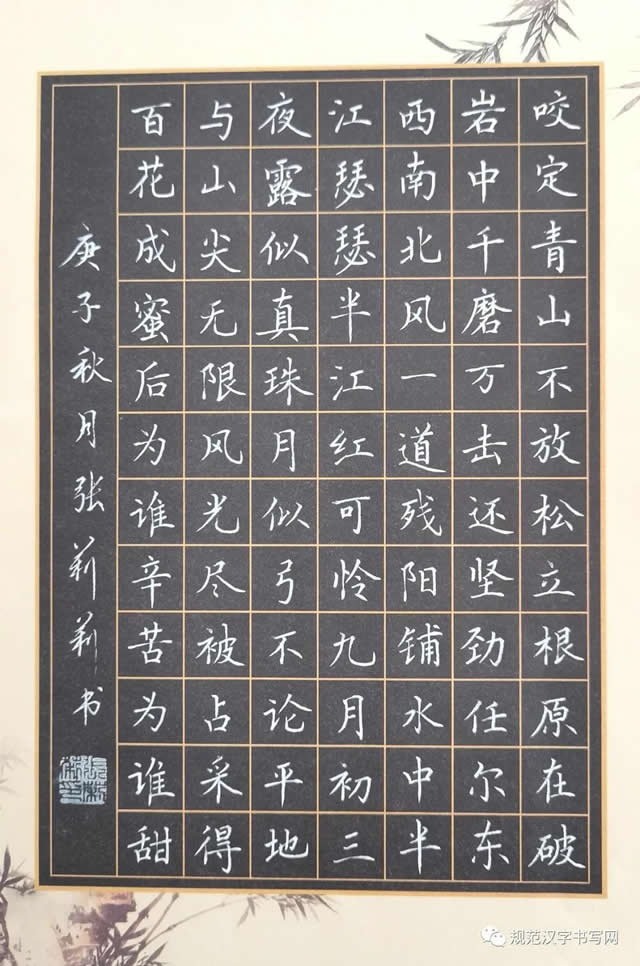 咬定青山不放松立根原在破
岩中千磨万击还坚劲任尔东
西南北风一道残阳铺水中半
江瑟瑟半江红可怜九月初三
夜露似真珠月似弓不论平地
与山尖无限风光尽被占采得
百花成蜜后为谁辛苦为谁甜
庚子秋月张莉莉书
规范汉字书写网